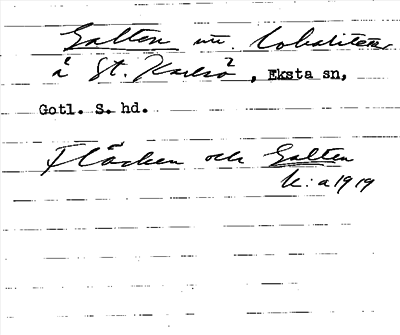 Galten m. lokaliteter
å St. Karlsö 2, Eksta sn,
Gotl. S. hd.
Fläcken och Galten
k: a 1919